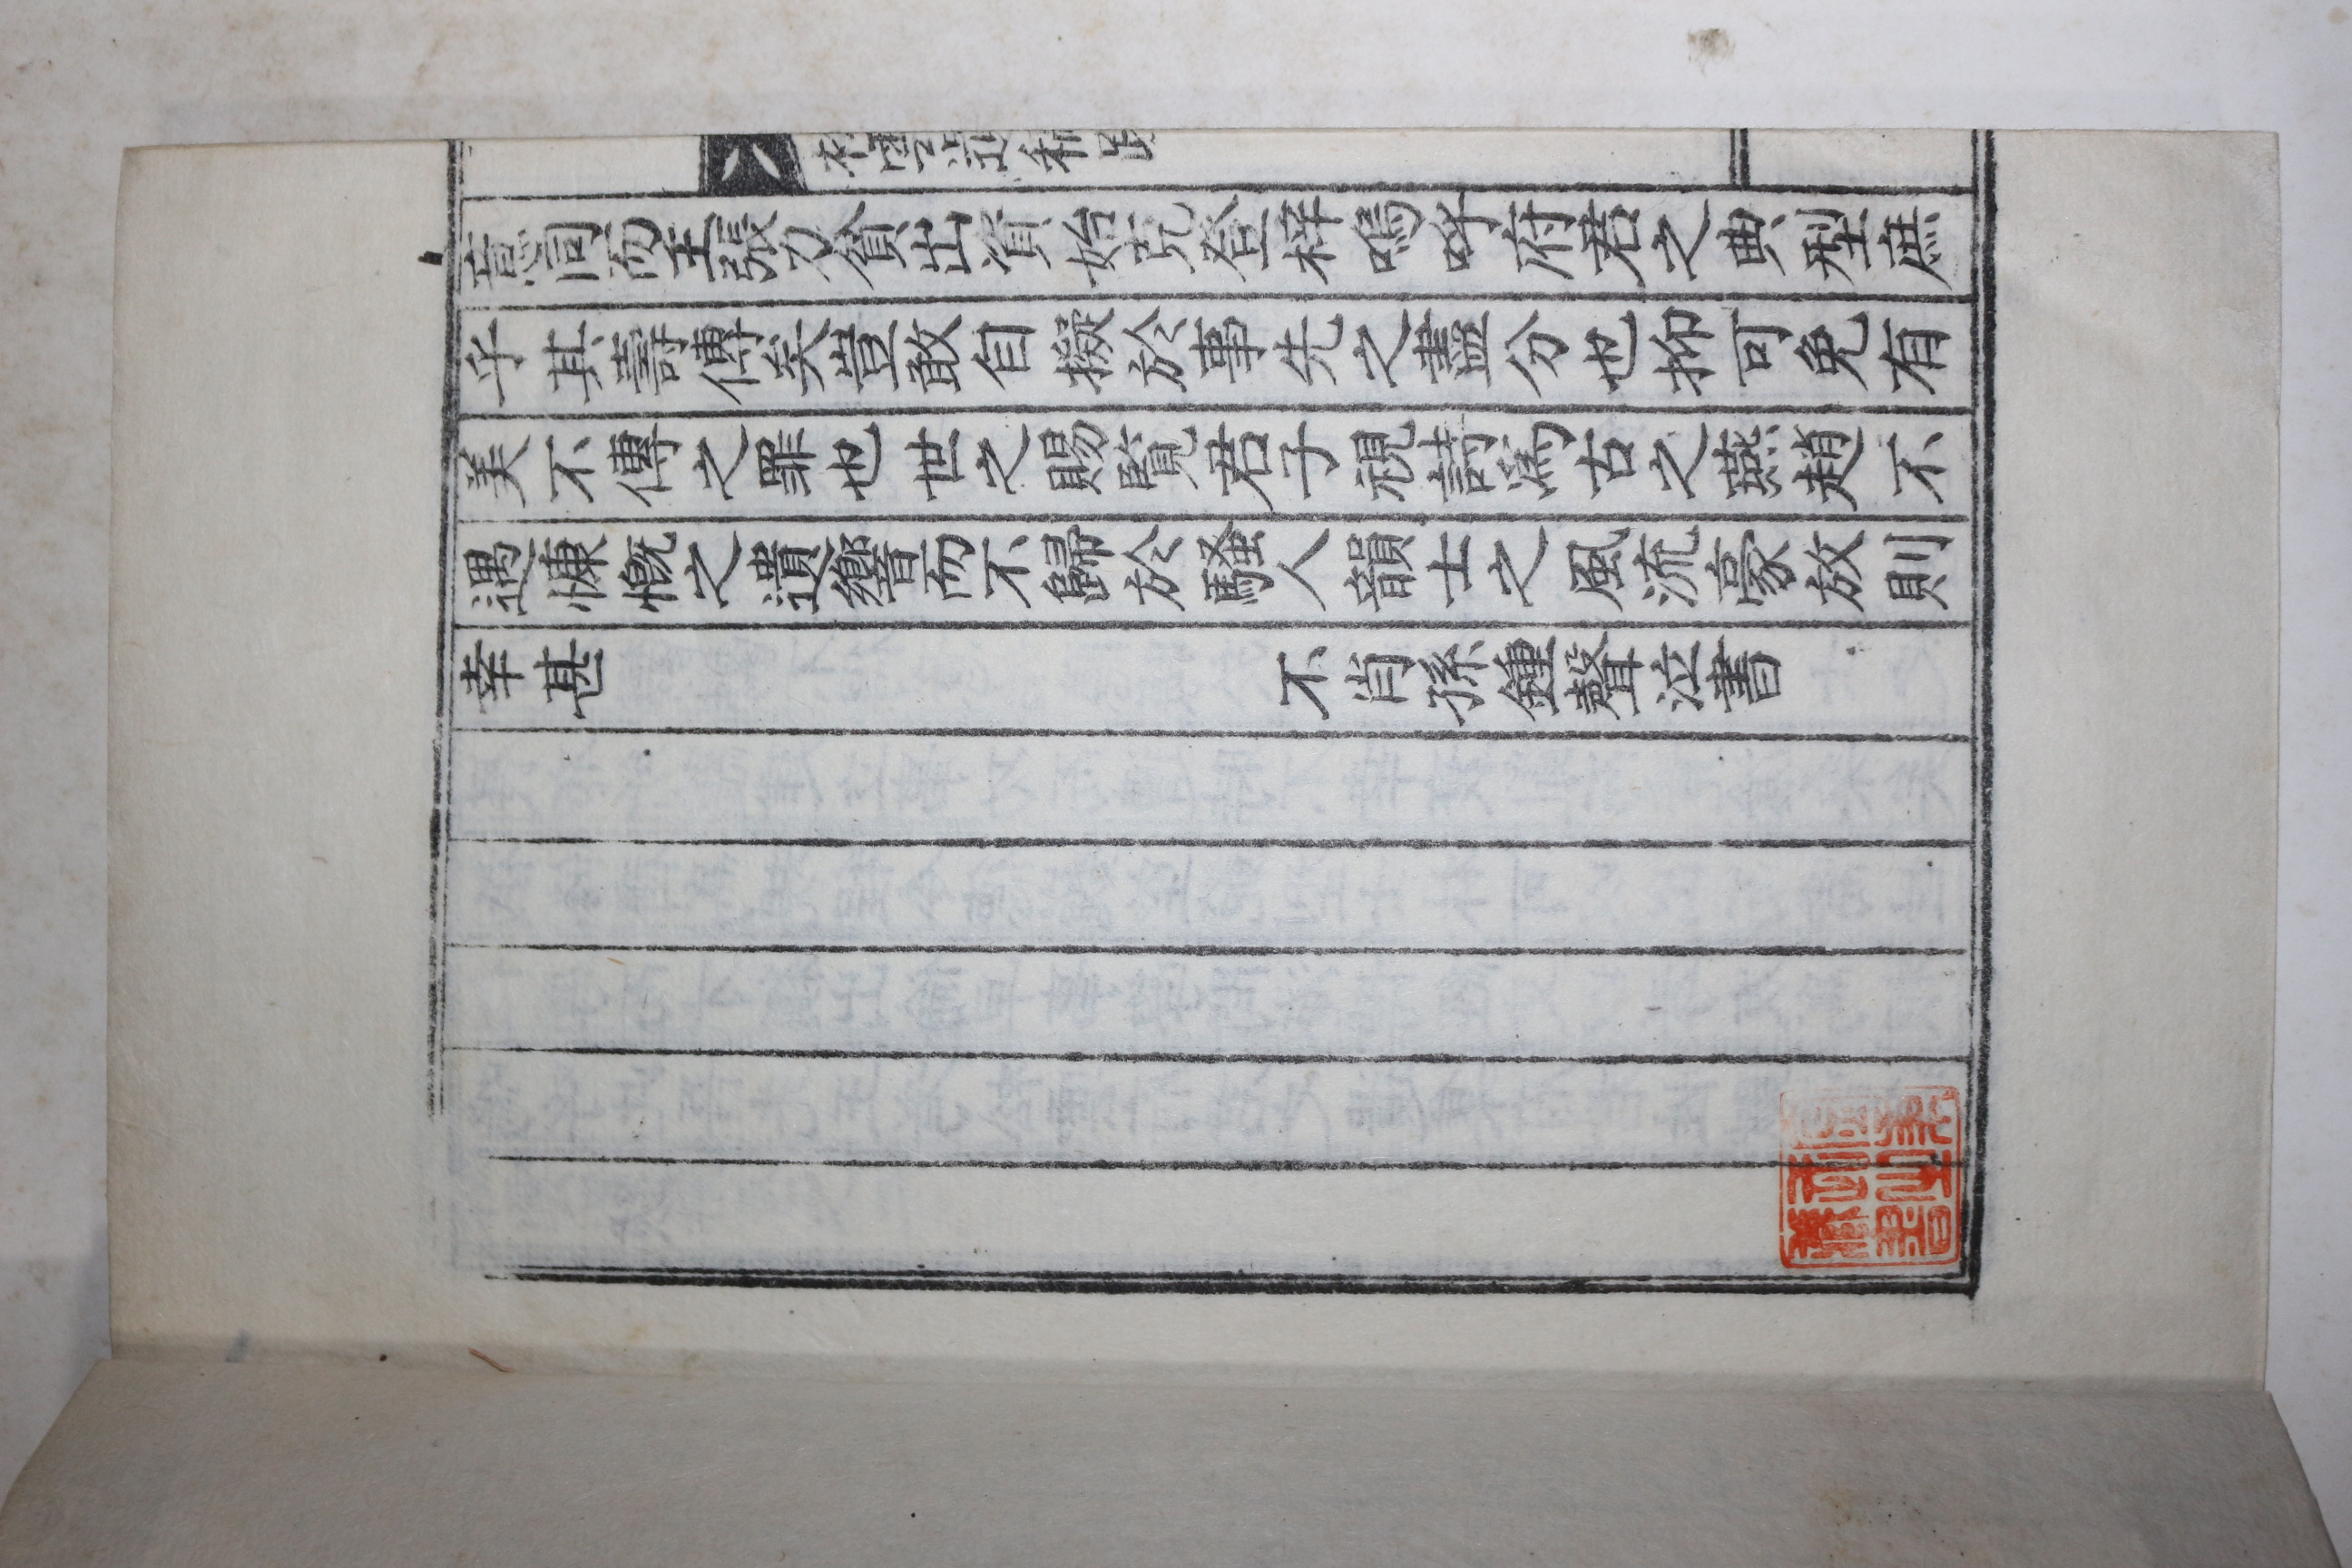 雲遺稿跋
意同而主張力貧出資始克登梓嗚呼府君之典型庶
乎其壽傳矣豈敢自擬於事先之盡分也抑可免有
美不傳之罪也世之賜覽君子視詩爲古之燕趙不
遇慷慨之遺響而不歸於騷人韻士之風流豪放則
幸甚
不肖孫鍾聲泣書
藏書